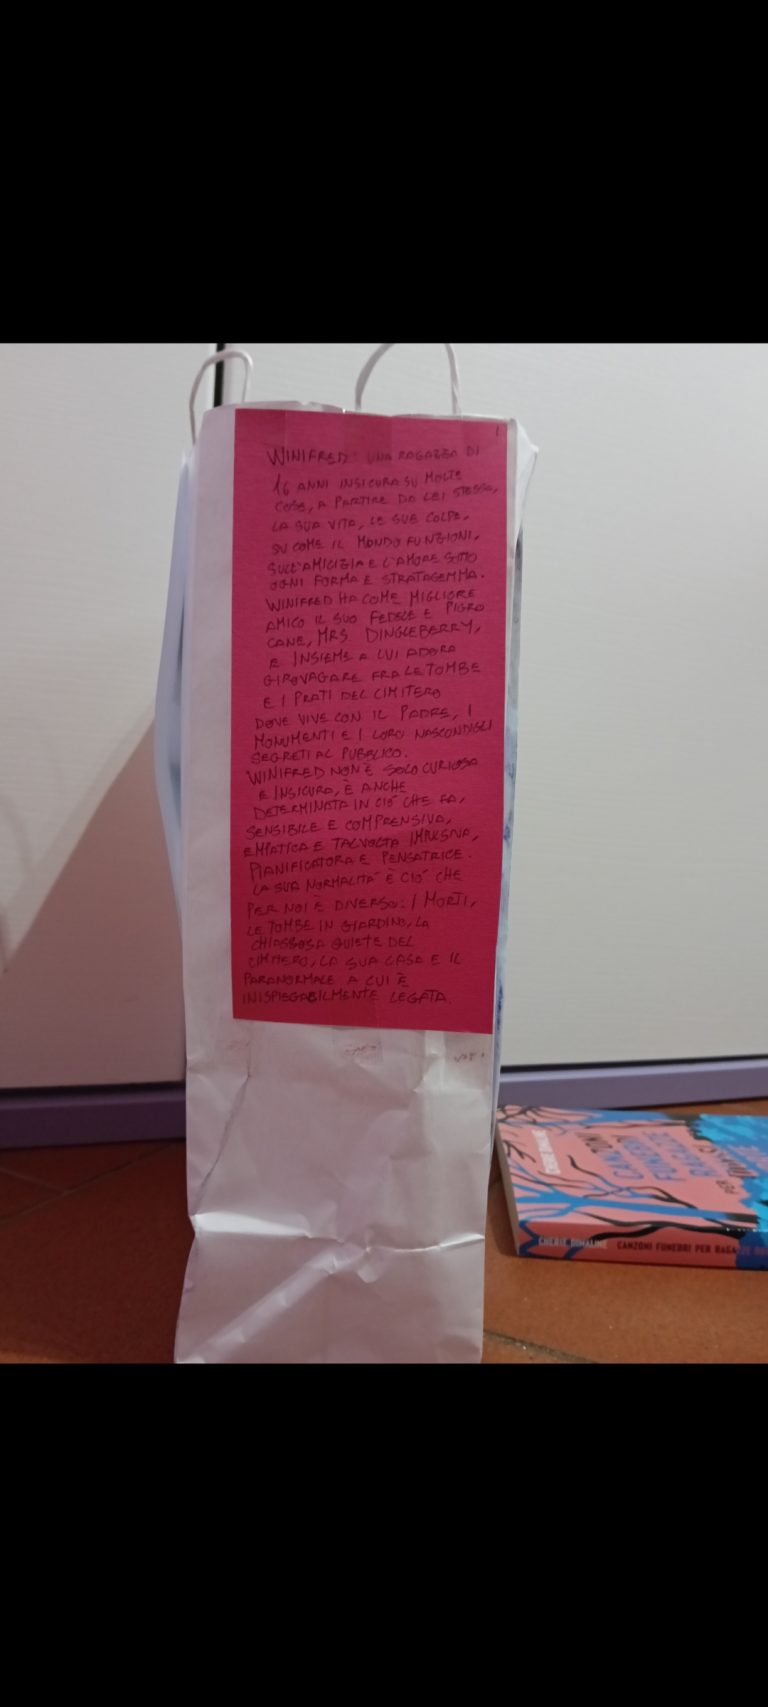 1
WINIFRED: UNA RAGAZZA DI
16 ANNI INSICURA SU MOLTE
COSE, A PARTIRE DA LEI STESSA,
LA SUA VITA, LE SUE COLPE,
SU COME IL MONDO FUNZIONI,
SULL'AMICIZIA E L'AMORE SOTTO
OGNI FORMA E STRATAGEMMA.
WINIFRED HA COME MIGLIORE
AMICO IL SUO FEDELE E PIGRO
CANE, MRS DINGLEBERRY,
E INSIEME A LUI ADORA
GIROVAGARE FRA LE TOMBE
E I PRATI DEL CIMITERO
DOVE VIVE CON IL PADRE, I
MONUMENTI E I LORO NASCONDIGLI
SEGRETI AL PUBBLICO.
WINIFRED NON È SOLO CURIOSA
E INSICURA, È ANCHE
DETERMINATA IN CIÒ CHE FA,
SENSIBILE E COMPRENSIVA,
EMPATICA E TALVOLTA IMPULSIVA,
PIANIFICATORA E PENSATRICE.
LA SUA NORMALITÀ È CIÒ CHE
PER NOI È DIVERSO: I MORTI,
LE TOMBE IN GIARDINO, LA
CHIASSOSA QUIETE DEL
CIMITERO, LA SUA CASA E IL
PARANORMALE A CUI È
INISPIEGABILMENTE LEGATA.
CHERIE DIMALINE
CANZONI
FUNEBRI
PER
CHERIE DIMALINE CANZONI FUNEBRI PER RAGAZZE